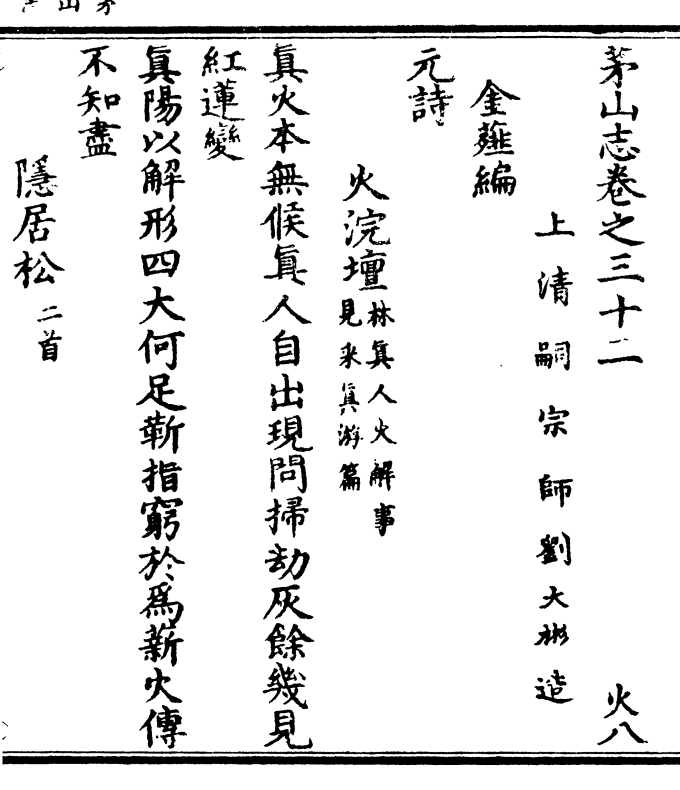 茅山志卷之三十二 火八
上清嗣宗師劉大彬造
金薤編
元詩
火浣壇 林真人火解事 見采真游篇
真火本無候真人自出現問掃劫灰餘幾見
紅蓮變
真陽以解形四大何足蘄指窮於為薪火傳
不知盡
隱居松 二首